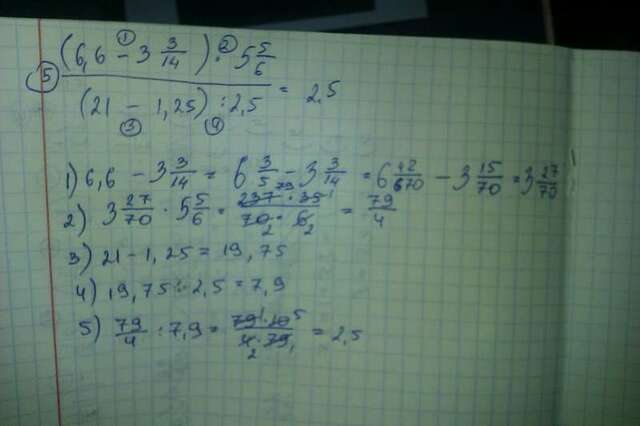 5) ((6,6 - 3 3/14) · 5 5/6) / ((21 - 1,25) : 2,5) = 2,5
1) 6,6 - 3 3/14 = 6 3/5 - 3 3/14 = 6 42/70 - 3 15/70 = 3 27/70
2) 3 27/70 · 5 5/6 = (237 · 35)/(70 · 6) = 79/4
3) 21 - 1,25 = 19,75
4) 19,75 : 2,5 = 7,9
5) 79/4 : 7,9 = (79 · 10)/(4 · 79) = 2,5